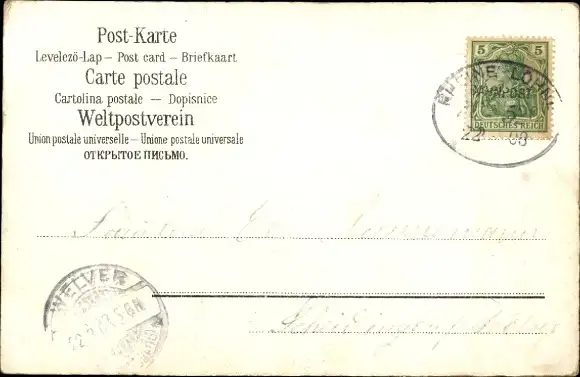 Post-Karte
Levelező-Lap – Post card – Briefkaart
Carte postale
Cartolina postale — Dopisnice
Weltpostverein
Union postale universelle – Unione postale universale
ОТКРЫТОЕ ПИСЬМО.
5 5
DEUTSCHES REICH
RHEINE LÖHNE
BAHNPOST
22 5 03
Fräulein
WELVER
22 5 03 5-6N